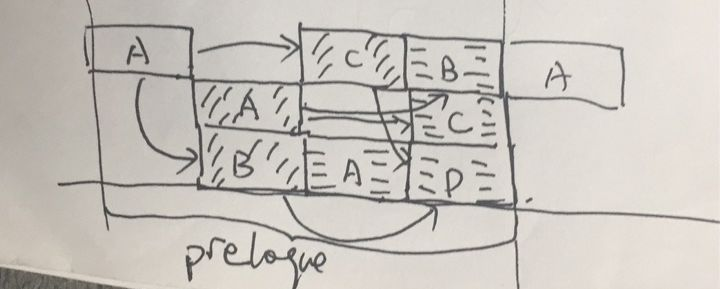 A C B A
A C
B A D
prelogue